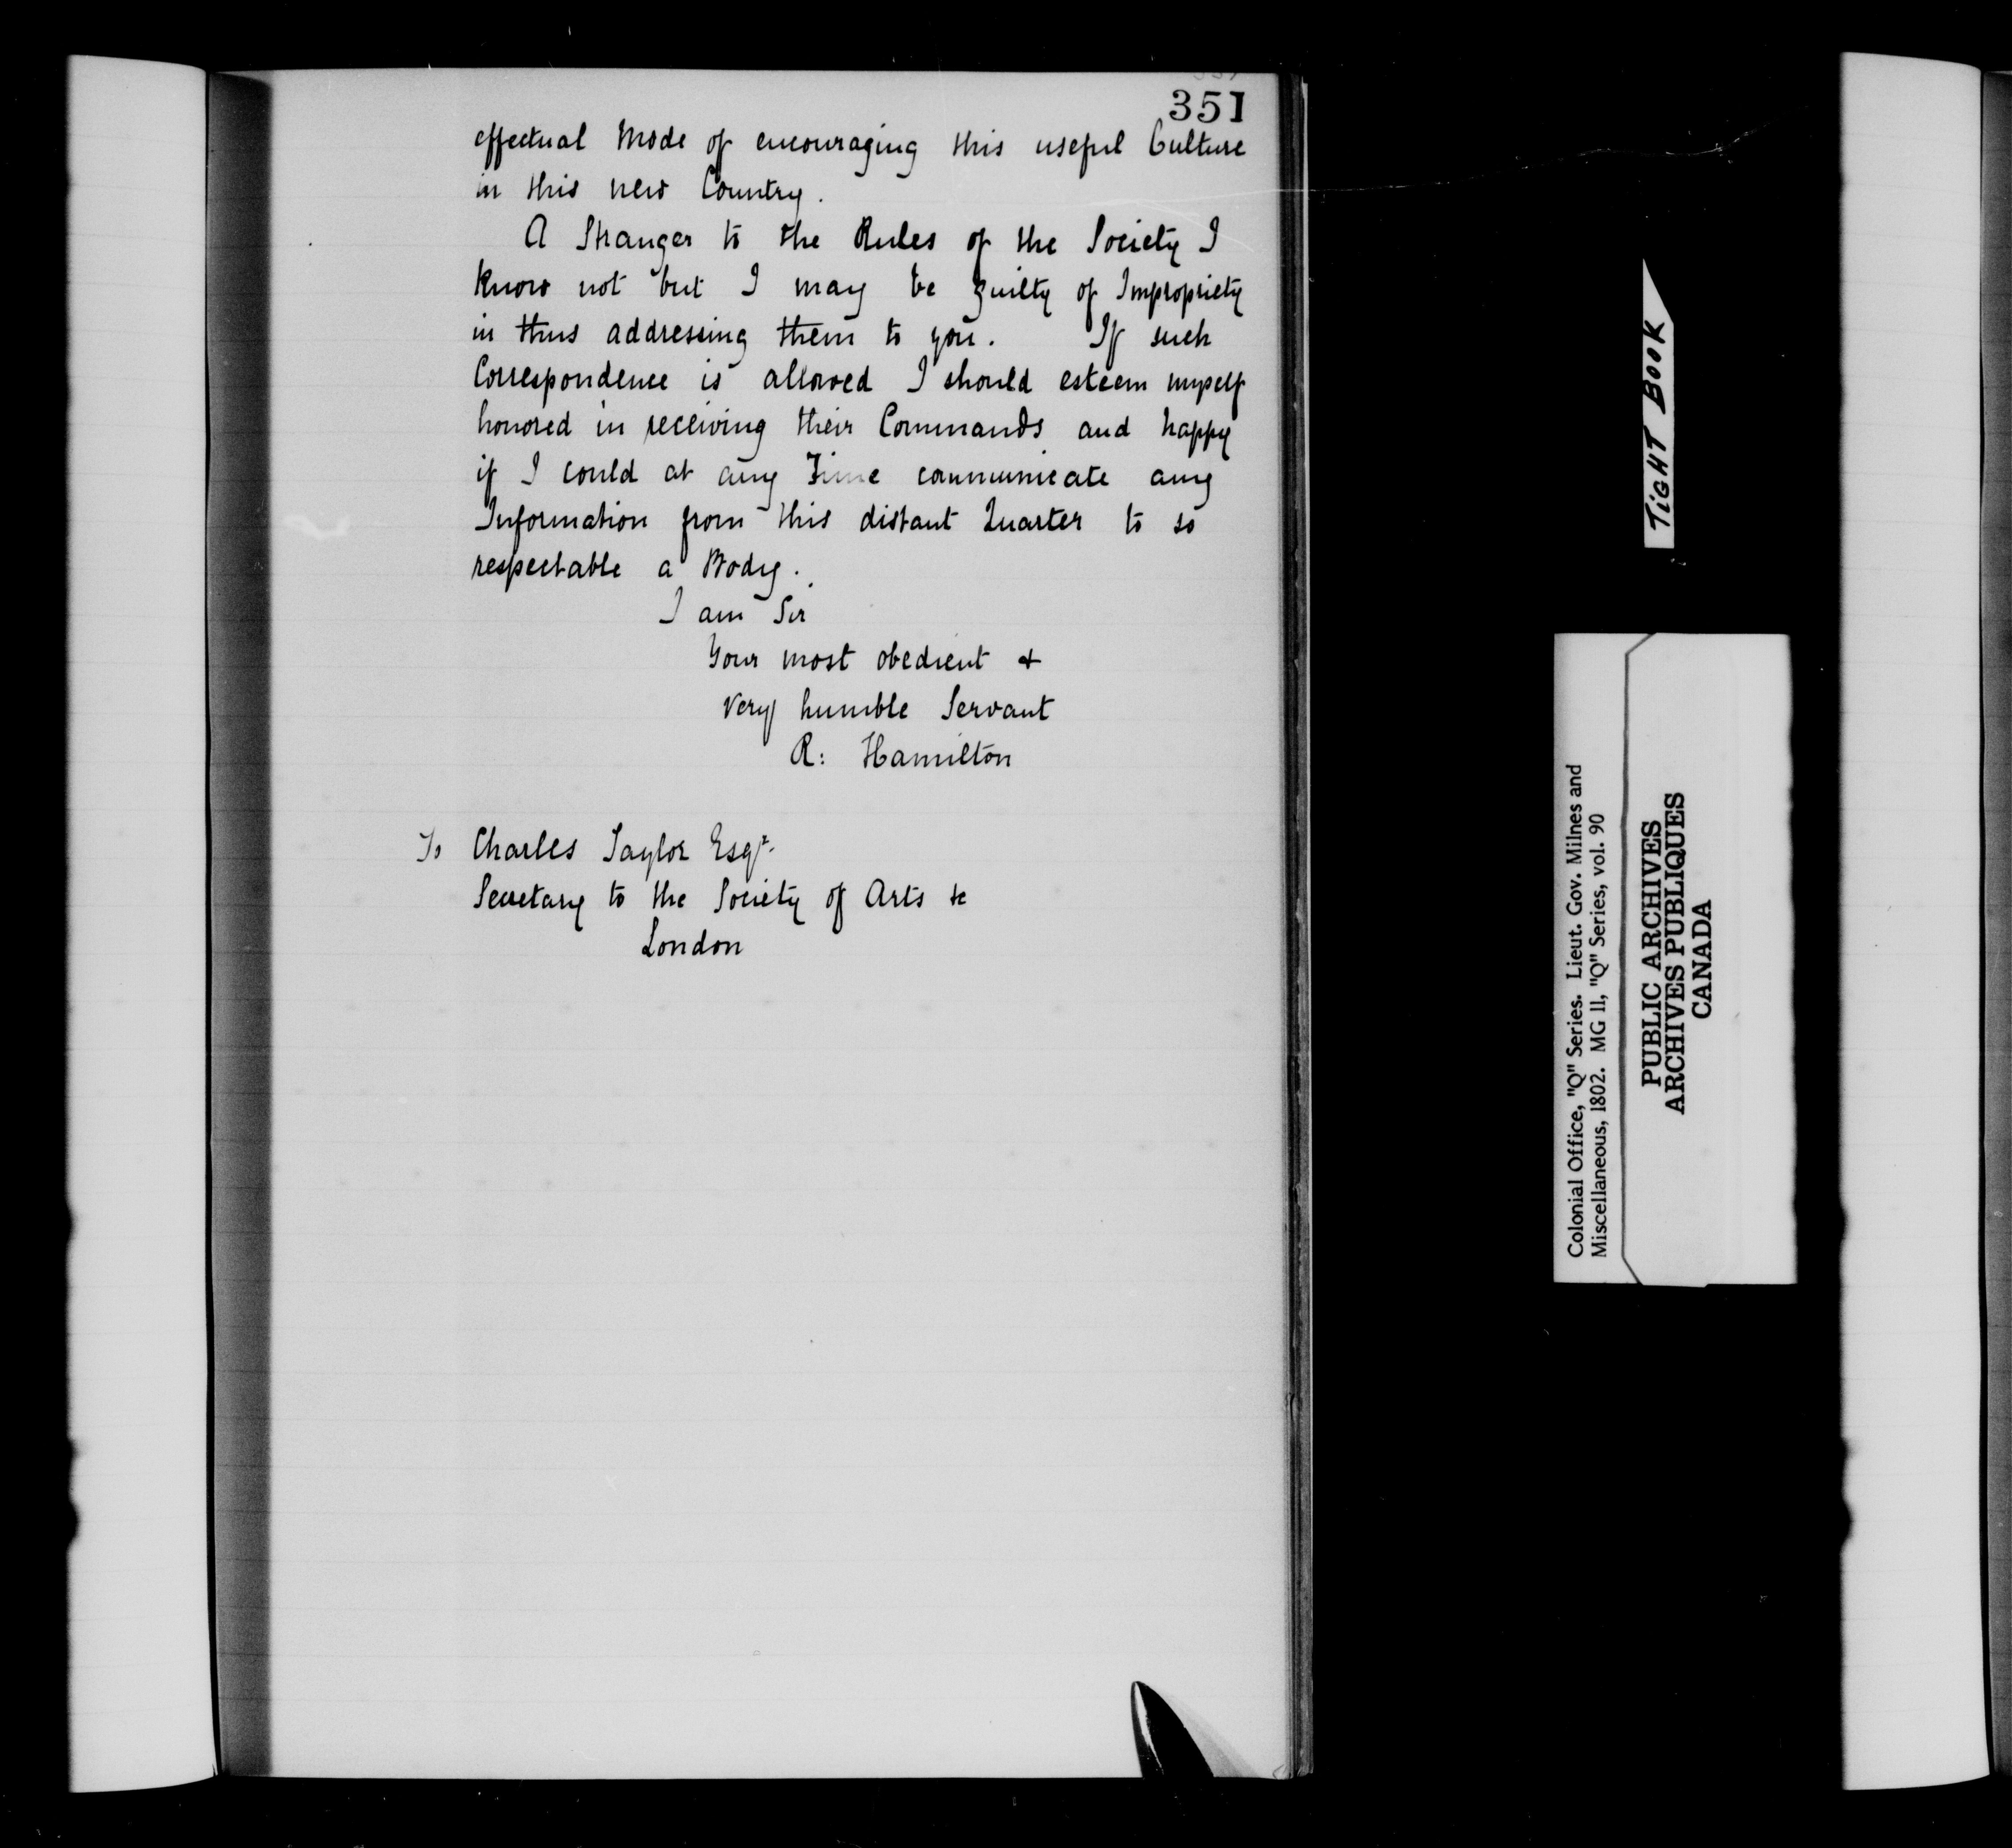 351
effectual Mode of encouraging this useful Culture
in this new Country.
A Stranger to the Rules of the Society I
know not but I may be guilty of Impropriety
in thus addressing them to you. If such
Correspondence is allowed I should esteem myself
honored in receiving their Commands and happy
if I could at any Time communicate any
Information from this distant Quarter to so
respectable a Body.
I am Sir
Your most obedient &
very humble Servant
R: Hamilton
To Charles Taylor Esqr.
Secretary to the Society of Arts &c
London
TIGHT BOOK
Colonial Office, "Q" Series. Lieut. Gov. Milnes and
Miscellaneous, 1802. MG 11, "Q" Series, vol. 90
PUBLIC ARCHIVES
ARCHIVES PUBLIQUES
CANADA